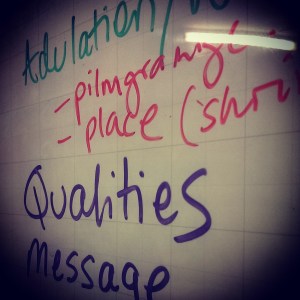 Adulation/
- pilmgramage
- place (shri
Qualities
Message